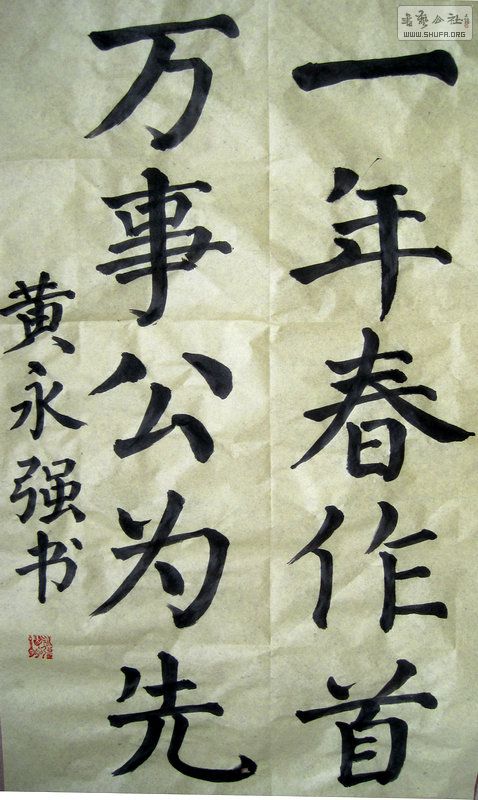 一年春作首
万事公为先
黄永强书
书艺公社
WWW.SHUFA.ORG